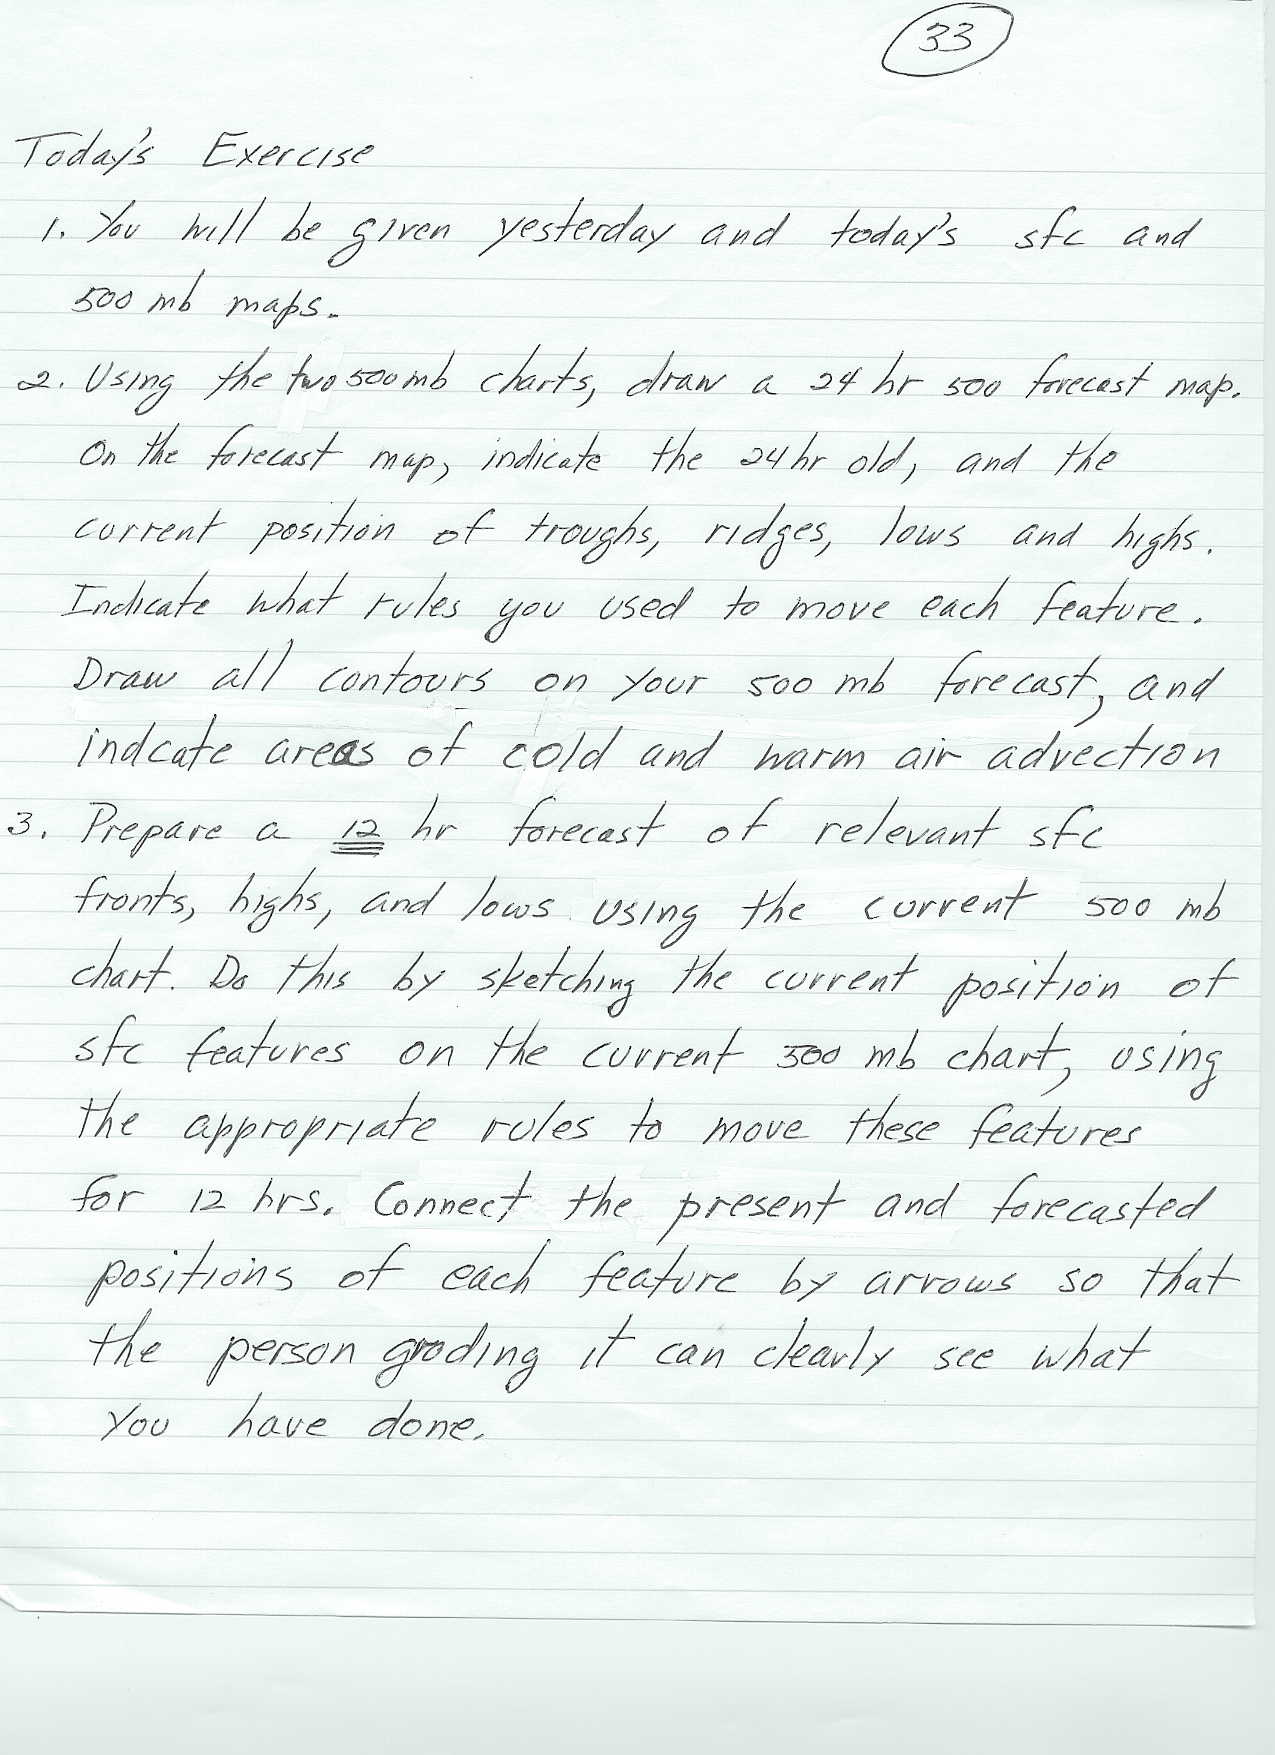 33
Today's Exercise
1. You will be given yesterday and today's sfc and
500 mb maps.
2. Using the two 500mb charts, draw a 24 hr 500 forecast map.
On the forecast map, indicate the 24hr old, and the
current position of troughs, ridges, lows and highs.
Indicate what rules you used to move each feature.
Draw all contours on your 500 mb forecast, and
indcate areas of cold and warm air advection
3. Prepare a 12 hr forecast of relevant sfc
fronts, highs, and lows using the current 500 mb
chart. Do this by sketching the current position of
sfc features on the current 500 mb chart, using
the appropriate rules to move these features
for 12 hrs. Connect the present and forecasted
positions of each feature by arrows so that
the person grading it can clearly see what
you have done.